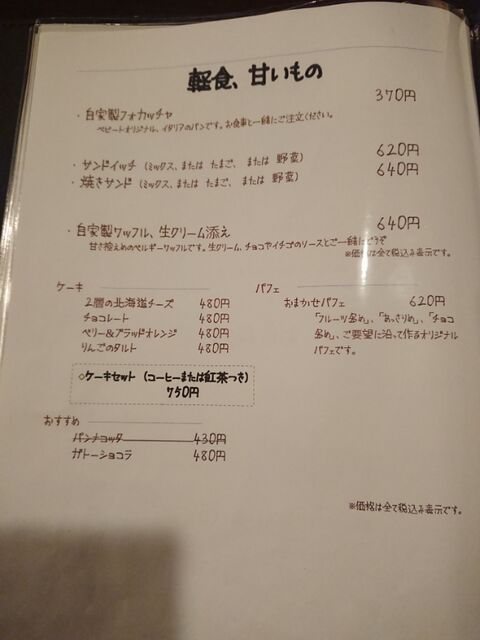 軽食、甘いもの
・自家製フォカッチャ 370円
ベビートオリジナル、イタリアのパンです。お食事と一緒にご注文ください。
・サンドイッチ (ミックス、または たまご、 または 野菜) 620円
・焼きサンド (ミックス、または たまご、 または 野菜) 640円
・自家製ワッフル、生クリーム添え 640円
甘さ控えめのベルギーワッフルです。生クリーム、チョコやイチゴのソースとご一緒にどうぞ
※価格は全て税込み表示です。
ケーキ
2層の北海道チーズ 480円
チョコレート 480円
ベリー&ブラッドオレンジ 480円
りんごのタルト 480円
◇ケーキセット (コーヒーまたは紅茶つき)
750円
おすすめ
パンナコッタ 430円
ガトーショコラ 480円
パフェ
おまかせパフェ 620円
「フルーツ多め」、「あっさりめ」、「チョコ
多め」、ご要望に沿って作るオリジナル
パフェです。
※価格は全て税込み表示です。